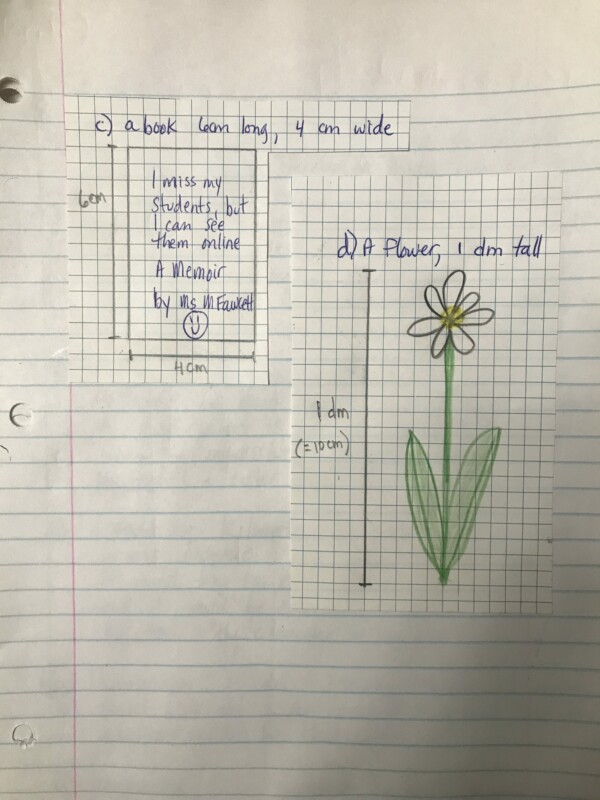 c) a book 6cm long, 4 cm wide
6cm
I miss my
students, but
I can see
them online
A Memoir
by Ms McFawcett
4cm
d) A flower, 1 dm tall
1 dm
(=10cm)